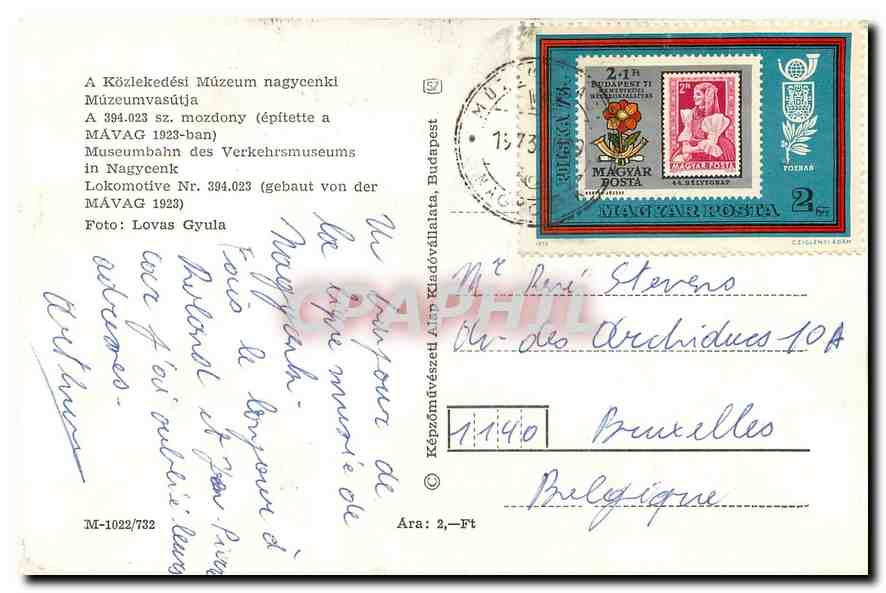 A Közlekedési Múzeum nagycenki
Múzeumvasútja
A 394.023 sz. mozdony (építette a
MÁVAG 1923-ban)
Museumbahn des Verkehrsmuseums
in Nagycenk
Lokomotive Nr. 394.023 (gebaut von der
MÁVAG 1923)
Foto: Lovas Gyula
Un bonjour de
la ligne musée de
Nagycenk.
Fais le bonjour à
Roland et Jean-Pierre
car j'ai oublié leurs
adresses.
Arthur
M-1022/732
Ara: 2,—Ft
© Képzőművészeti Alap Kiadóvállalata, Budapest
1973
POLSKA 73.
2+1 Ft
BUDAPEST 71
MAGYAR
POSTA
2 Ft
MAGYAR POSTA
44. BÉLYEGNAP
POZNAŃ
MAGYAR POSTA 2 Ft
1973
CZIGLÉNYI ÁDÁM
Mr René Stevens
Av. des Archiducs 10A
1140 Bruxelles
Belgique
CPAPHIL